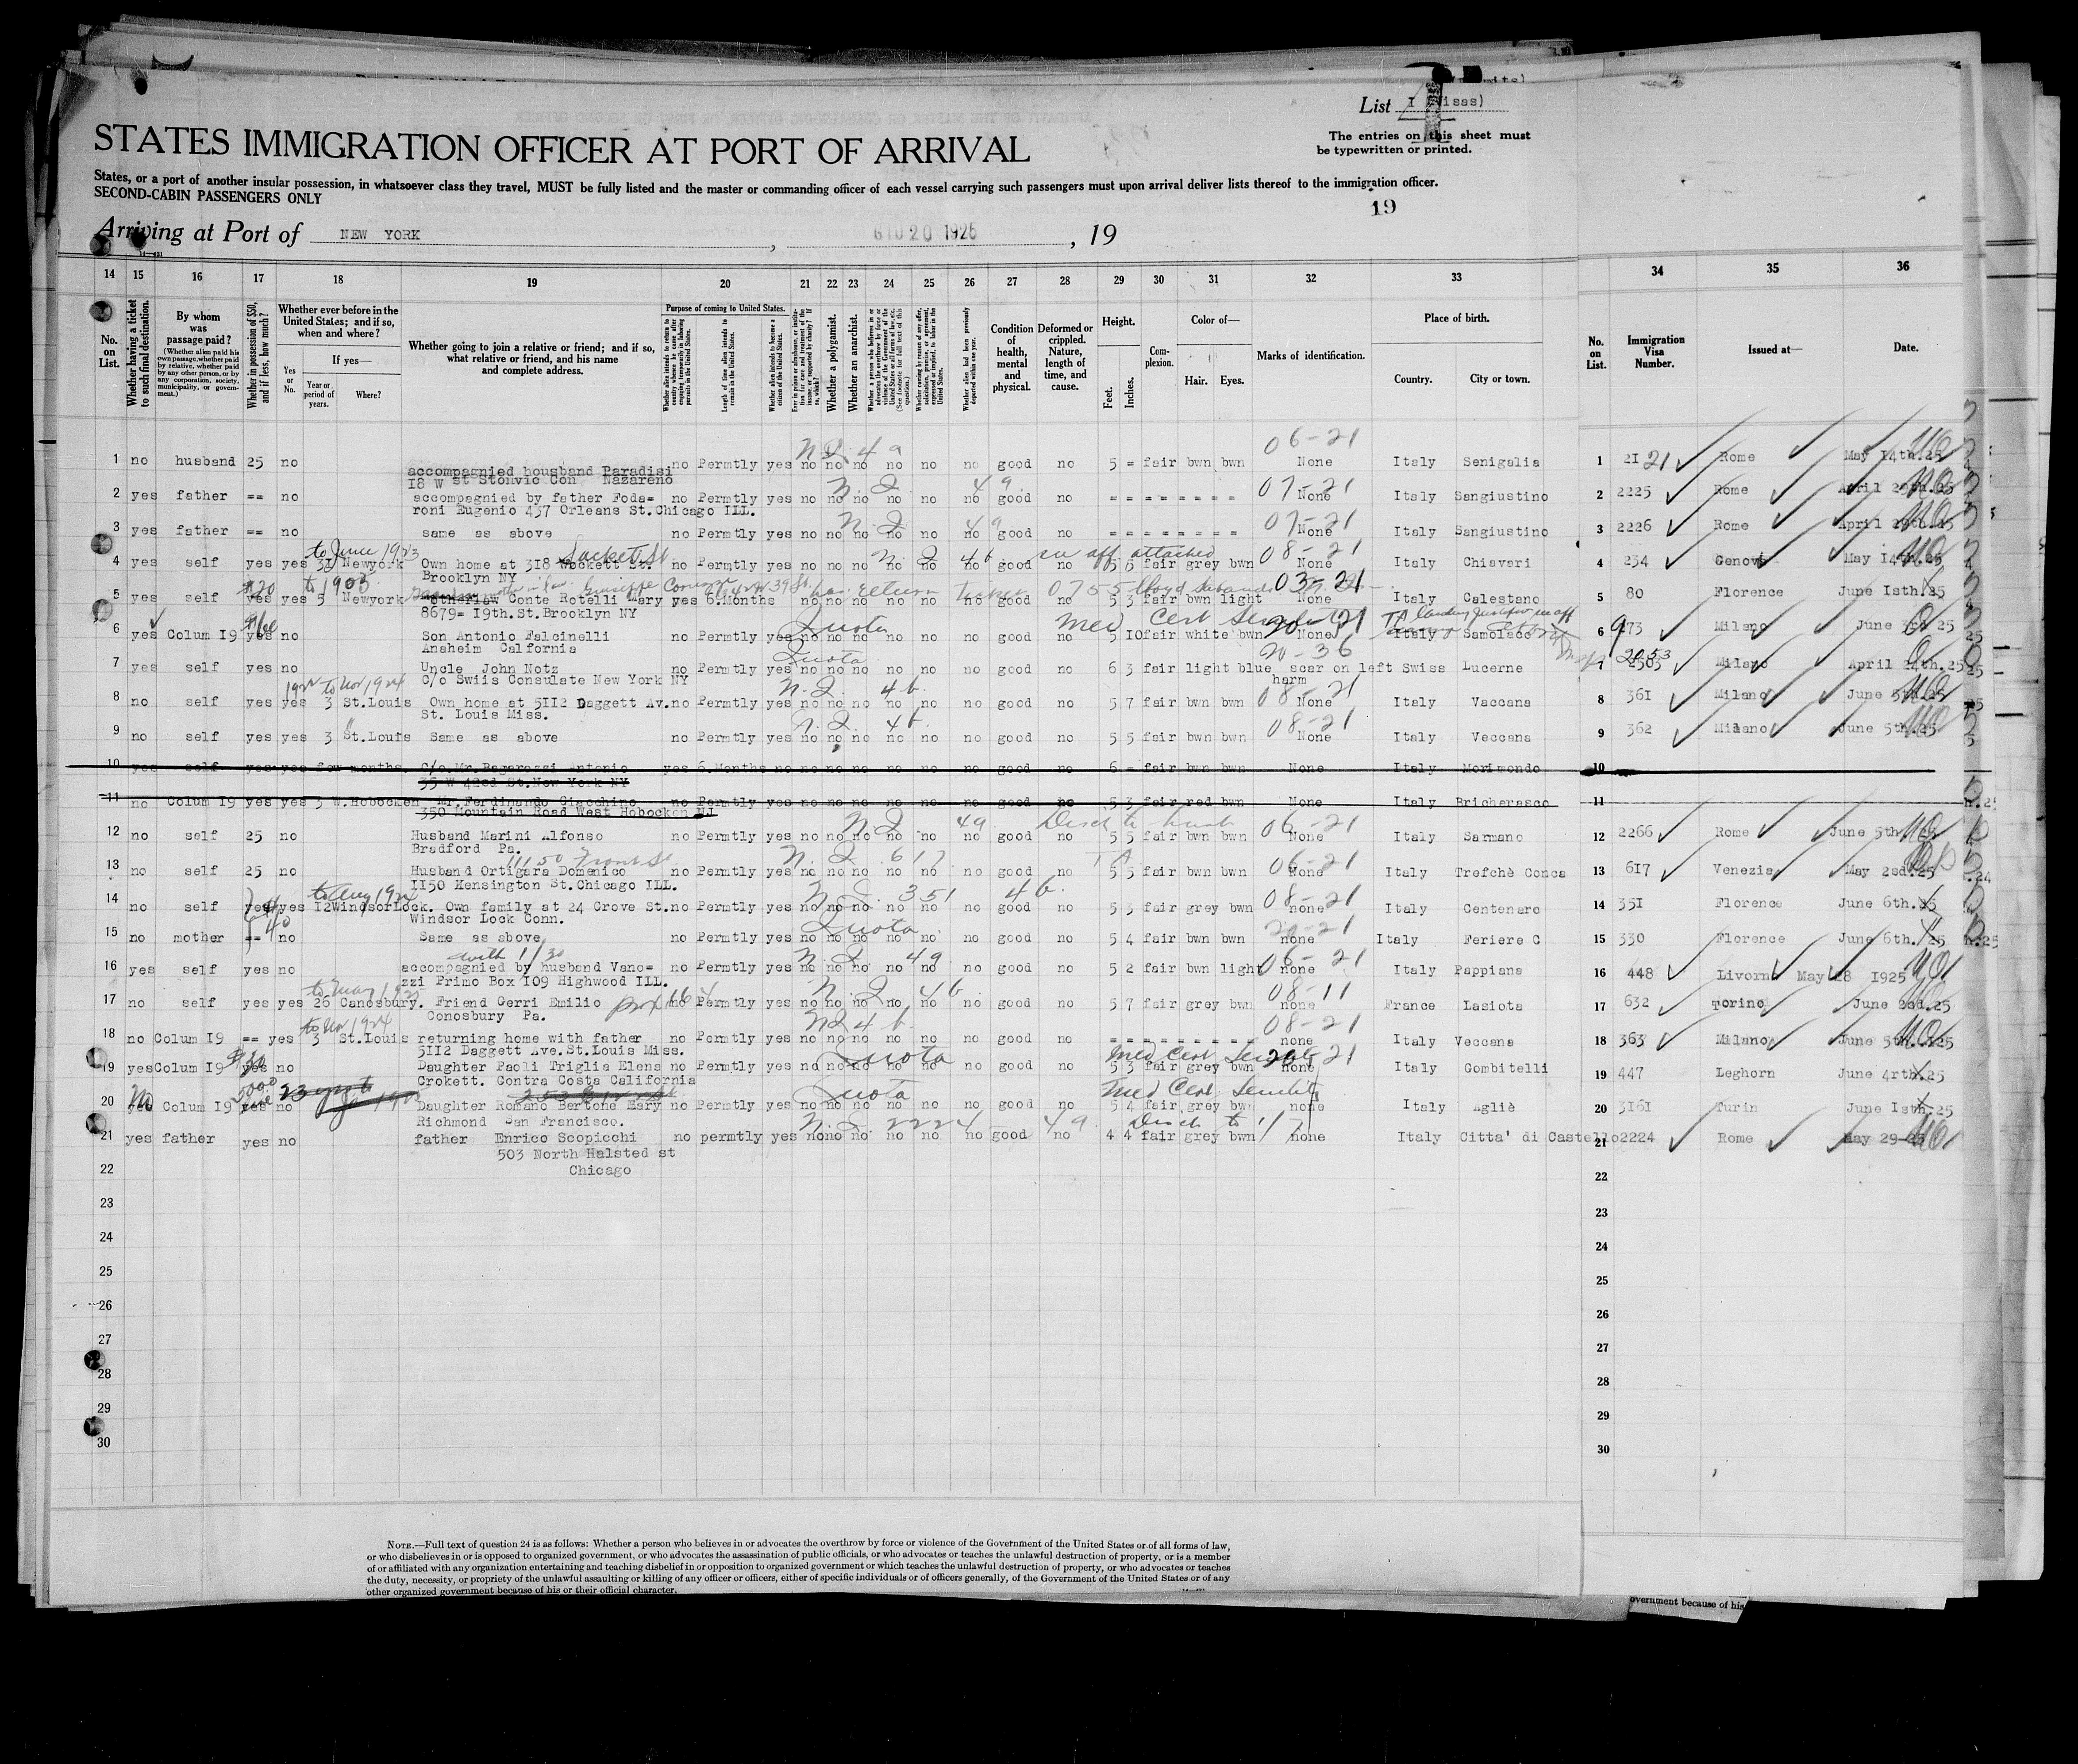 List I (Visas)
The entries on this sheet must
be typewritten or printed.
STATES IMMIGRATION OFFICER AT PORT OF ARRIVAL
States, or a port of another insular possession, in whatsoever class they travel, MUST be fully listed and the master or commanding officer of each vessel carrying such passengers must upon arrival deliver lists thereof to the immigration officer.
SECOND-CABIN PASSENGERS ONLY
19
Arriving at Port of NEW YORK , 20 1925 , 19
14 15 16 17 18 19 20 21 22 23 24 25 26 27 28 29 30 31 32 33 34 35 36
No. on List.
Whether having a ticket to such final destination.
By whom was passage paid?
(Whether alien paid his own passage, whether paid by relative, whether paid by any other person, or by any corporation, society, municipality, or government.)
Whether in possession of $50, and if less, how much?
Whether ever before in the United States; and if so, when and where?
If yes—
Yes or No.
Year or period of years.
Where?
Whether going to join a relative or friend; and if so, what relative or friend, and his name and complete address.
Purpose of coming to United States.
Length of time alien intends to remain in the United States.
Whether alien intends to become a citizen of the United States.
Whether a polygamist.
Whether an anarchist.
Condition of health, mental and physical.
Deformed or crippled. Nature, length of time, and cause.
Height.
Feet.
Inches.
Complexion.
Color of—
Hair.
Eyes.
Marks of identification.
Place of birth.
Country.
City or town.
No. on List.
Immigration Visa Number.
Issued at—
Date.
N.Q. 4a 06-21
1 no husband 25 no no Permtly yes no no no no no no good no 5 = fair bwn bwn None Italy Senigalia 1 2121 Rome May 14th.25
accompagnied housband Paradisi
18 W st Stonvic Con Nazareno
2 yes father == no accompagnied by father Foda= no Permtly yes no no no no no no good no = = = = = = = = None Italy Sangiustino 2 2225 Rome April 29th.25
roni Eugenio 437 Orleans St.Chicago ILL.
3 yes father == no same as above no Permtly yes no no no no no no good no = = = = = = = = None Italy Sangiustino 3 2226 Rome April 29th.25
to June 1923 Sackett St. N.Q. 4b see aff attached 08-21
4 yes self yes yes 31 Newyork Own home at 318 Wockett St. no Permtly yes no no no no no no good no 5 6 fair grey bwn None Italy Chiavari 4 254 Genova May 14th.25
Brooklyn NY
$20 to 1903 03-21
5 yes self yes yes 5 Newyork Conte Rotelli Mary yes 6.Months no no no no no no no good no 5 3 fair bwn light None Italy Calestano 5 80 Florence June Isth.25
8679= 19th.St.Brooklyn NY
Quota Med Cert Senility
6 yes Colum I9 yes no Son Antonio Falcinelli no Permtly yes no no no no no no good no 5 IO fair white bwn None Italy Samolaco 6 973 Milano June 3rd 25
Anaheim Calfornia
Quota 20-36
7 yes self yes no Uncle John Notz no Permtly yes no no no no no no good no 6 3 fair light blue scar on left Swiss Lucerne 7 2053 Milano April 24th.25
C/o Swiis Consulate New York NY harm
to Nov 1924 N.Q. 4b. 08-21
8 no self yes yes 3 St.Louis Own home at 5II2 Daggett Av. no Permtly yes no no no no no no good no 5 7 fair bwn bwn None Italy Vaccana 8 361 Milano June 5th.25
St. Louis Miss.
N.Q. 4b. 08-21
9 no self yes yes 3 St.Louis Same as above no Permtly yes no no no no no no good no 5 5 fair bwn bwn None Italy Veccana 9 362 Milano June 5th.25
10 yes self yes yes few months. C/o.Mr.Bagarozzi Antonio yes 6.Months no no no no no no no good no 6 = fair bwn bwn None Italy Morimondo 10
35 W 42nd St.New York NY
11 no Colum I9 yes yes 5 W.Hobocken Mr.Ferdinando Giacchino no Permtly yes no no no no no no good no 5 3 fair red bwn None Italy Bricherasco 11
350 Mountain Road West Hobocken NJ
N.Q. 4a 06-21
12 no self 25 no Husband Marini Alfonso no Permtly yes no no no no no no good no 5 5 fair bwn bwn None Italy Sarmano 12 2266 Rome June 5th.25
Bradford Pa.
11150 Front St. N.Q. 617 06-21
13 no self 25 no Husband Ortigara Domenico no Permtly yes no no no no no no good no 5 5 fair bwn bwn None Italy Trefchè Conca 13 617 Venezia May 22d.25
II50 Kensington St.Chicago ILL.
to Aug 1924 N.Q. 351 4b. 08-21
14 no self yes yes I2 WindsorLock. Own family at 24 Grove St. no Permtly yes no no no no no no good no 5 3 fair grey bwn none Italy Centenaro 14 351 Florence June 6th.25
Windsor Lock Conn.
$40 Quota 20-21
15 no mother == no Same as above no Permtly yes no no no no no no good no 5 4 fair bwn bwn none Italy Feriere C 15 330 Florence June 6th.25
with 1/30 N.Q. 4a 06-21
16 yes self yes no accompagnied by husband Vano= no Permtly yes no no no no no no good no 5 2 fair bwn light none Italy Pappiana 16 448 Livorno May 28 1925
zzi Primo Box I09 Highwood ILL.
N.Q. 4b 08-11
17 no self yes yes 26 Canosbury. Friend Gerri Emilio Box 164 no Permtly yes no no no no no no good no 5 7 fair grey bwn none France Lasiota 17 632 Torino June 2sd.25
Conosbury Pa.
to Nov 1924 N.Q. 4b. 08-21
18 no Colum I9 == yes 3 St.Louis returning home with father no Permtly yes no no no no no no good no = = = = = = = = none Italy Veccana 18 363 Milano June 5th.25
5II2 Daggett Ave.St.Louis Miss.
$30 Quota Med Cert Senility 20-21
19 yes Colum I9 yes no Daughter Paoli Triglia Elena no Permtly yes no no no no no no good no 5 3 fair grey bwn none Italy Gombitelli 19 447 Leghorn June 4rth.25
Crokett. Contra Costa California
No Quota Med Cert Senility
20 yes Colum I9 yes no Daughter Romano Bertone Mary no Permtly yes no no no no no no good no 5 4 fair grey bwn none Italy Agliè 20 3161 Turin June Isth.25
Richmond San Francisco.
N.Q. 2224 4a. Disch to 1/7
21 yes father yes no father Enrico Scopicchi no permtly yes no no no no no no good no 4 4 fair grey bwn none Italy Citta' di Castello 21 2224 Rome May 29-25
503 North Halsted st
Chicago
22 22
23 23
24 24
25 25
26 26
27 27
28 28
29 29
30 30
NOTE.—Full text of question 24 is as follows: Whether a person who believes in or advocates the overthrow by force or violence of the Government of the United States or of all forms of law,
or who disbelieves in or is opposed to organized government, or who advocates the assassination of public officials, or who advocates or teaches the unlawful destruction of property, or is a member
of or affiliated with any organization entertaining and teaching disbelief in or opposition to organized government or which teaches the unlawful destruction of property, or who advocates or teaches
the duty, necessity, or propriety of the unlawful assaulting or killing of any officer or officers, either of specific individuals or of officers generally, of the Government of the United States or of any
other organized government because of his or their official character.
overnment because of his